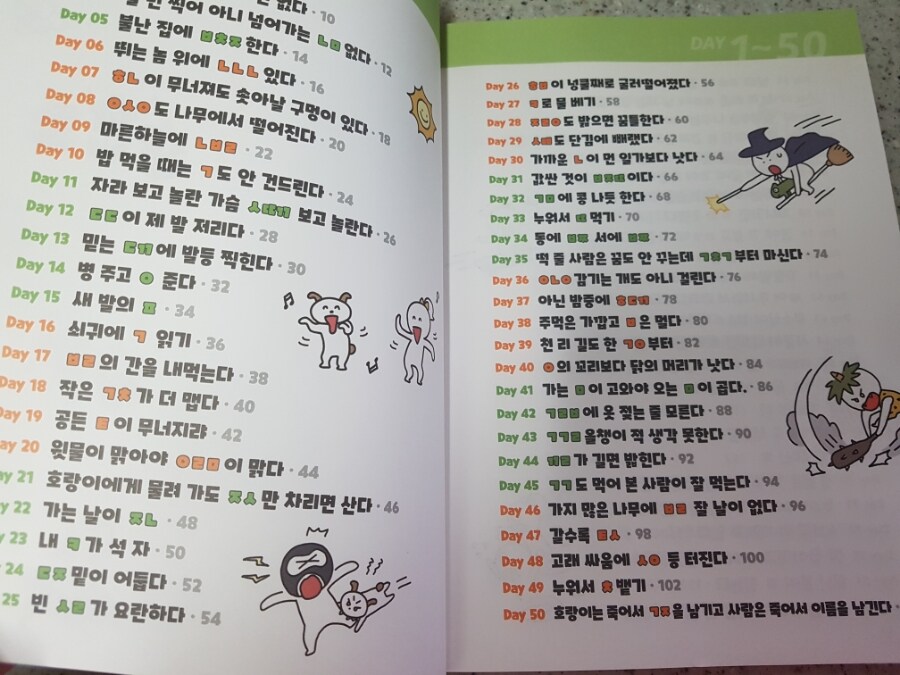 번 찍어 아니 넘어가는 ㄴㅁ 없다 · 12
Day 05 불난 집에 ㅂㅊㅈ 한다 · 14
Day 06 뛰는 놈 위에 ㄴㄴㄴ 있다 · 16
Day 07 ㅎㄴ이 무너져도 솟아날 구멍이 있다 · 18
Day 08 ㅇㅅㅇ도 나무에서 떨어진다 · 20
Day 09 마른하늘에 ㄴㅂㄹ · 22
Day 10 밥 먹을 때는 ㄱ도 안 건드린다 · 24
Day 11 자라 보고 놀란 가슴 ㅅㄸㄲ 보고 놀란다 · 26
Day 12 ㄷㄷ이 제 발 저리다 · 28
Day 13 믿는 ㄷㄲ에 발등 찍힌다 · 30
Day 14 병 주고 ㅇ 준다 · 32
Day 15 새 발의 ㅍ · 34
Day 16 쇠귀에 ㄱ 읽기 · 36
Day 17 ㅂㄹ의 간을 내먹는다 · 38
Day 18 작은 ㄱㅊ가 더 맵다 · 40
Day 19 공든 ㅌ이 무너지랴 · 42
Day 20 윗물이 맑아야 ㅇㄹㅁ이 맑다 · 44
21 호랑이에게 물려 가도 ㅈㅅ만 차리면 산다 · 46
22 가는 날이 ㅈㄴ · 48
23 내 ㅋ가 석 자 · 50
24 ㄷㅈ 밑이 어둡다 · 52
25 빈 ㅅㄹ가 요란하다 · 54
DAY 1~50
Day 26 ㅎㅂ이 넝쿨째로 굴러떨어졌다 · 56
Day 27 ㅋ로 물 베기 · 58
Day 28 ㅈㄹㅇ도 밟으면 꿈틀한다 · 60
Day 29 ㅅㅃ도 단김에 빼랬다 · 62
Day 30 가까운 ㄴ이 먼 일가보다 낫다 · 64
Day 31 값싼 것이 ㅂㅈㄸ이다 · 66
Day 32 ㄱㅁ에 콩 나듯 한다 · 68
Day 33 누워서 ㄸ 먹기 · 70
Day 34 동에 ㅂㅉ 서에 ㅂㅉ · 72
Day 35 떡 줄 사람은 꿈도 안 꾸는데 ㄱㅊㄱ부터 마신다 · 74
Day 36 ㅇㄴㅇ 감기는 개도 아니 걸린다 · 76
Day 37 아닌 밤중에 ㅎㄷㄲ · 78
Day 38 주먹은 가깝고 ㅂ은 멀다 · 80
Day 39 천 리 길도 한 ㄱㅇ부터 · 82
Day 40 ㅇ의 꼬리보다 닭의 머리가 낫다 · 84
Day 41 가는 ㅁ이 고와야 오는 ㅁ이 곱다. · 86
Day 42 ㄱㄹㅂ에 옷 젖는 줄 모른다 · 88
Day 43 ㄱㄱㄹ 올챙이 적 생각 못한다 · 90
Day 44 ㄲㄹ가 길면 밟힌다 · 92
Day 45 ㄱㄱ도 먹어 본 사람이 잘 먹는다 · 94
Day 46 가지 많은 나무에 ㅂㄹ 잘 날이 없다 · 96
Day 47 갈수록 ㅌㅅ · 98
Day 48 고래 싸움에 ㅅㅇ 등 터진다 · 100
Day 49 누워서 ㅊ 뱉기 · 102
Day 50 호랑이는 죽어서 ㄱㅈ을 남기고 사람은 죽어서 이름을 남긴다 ·